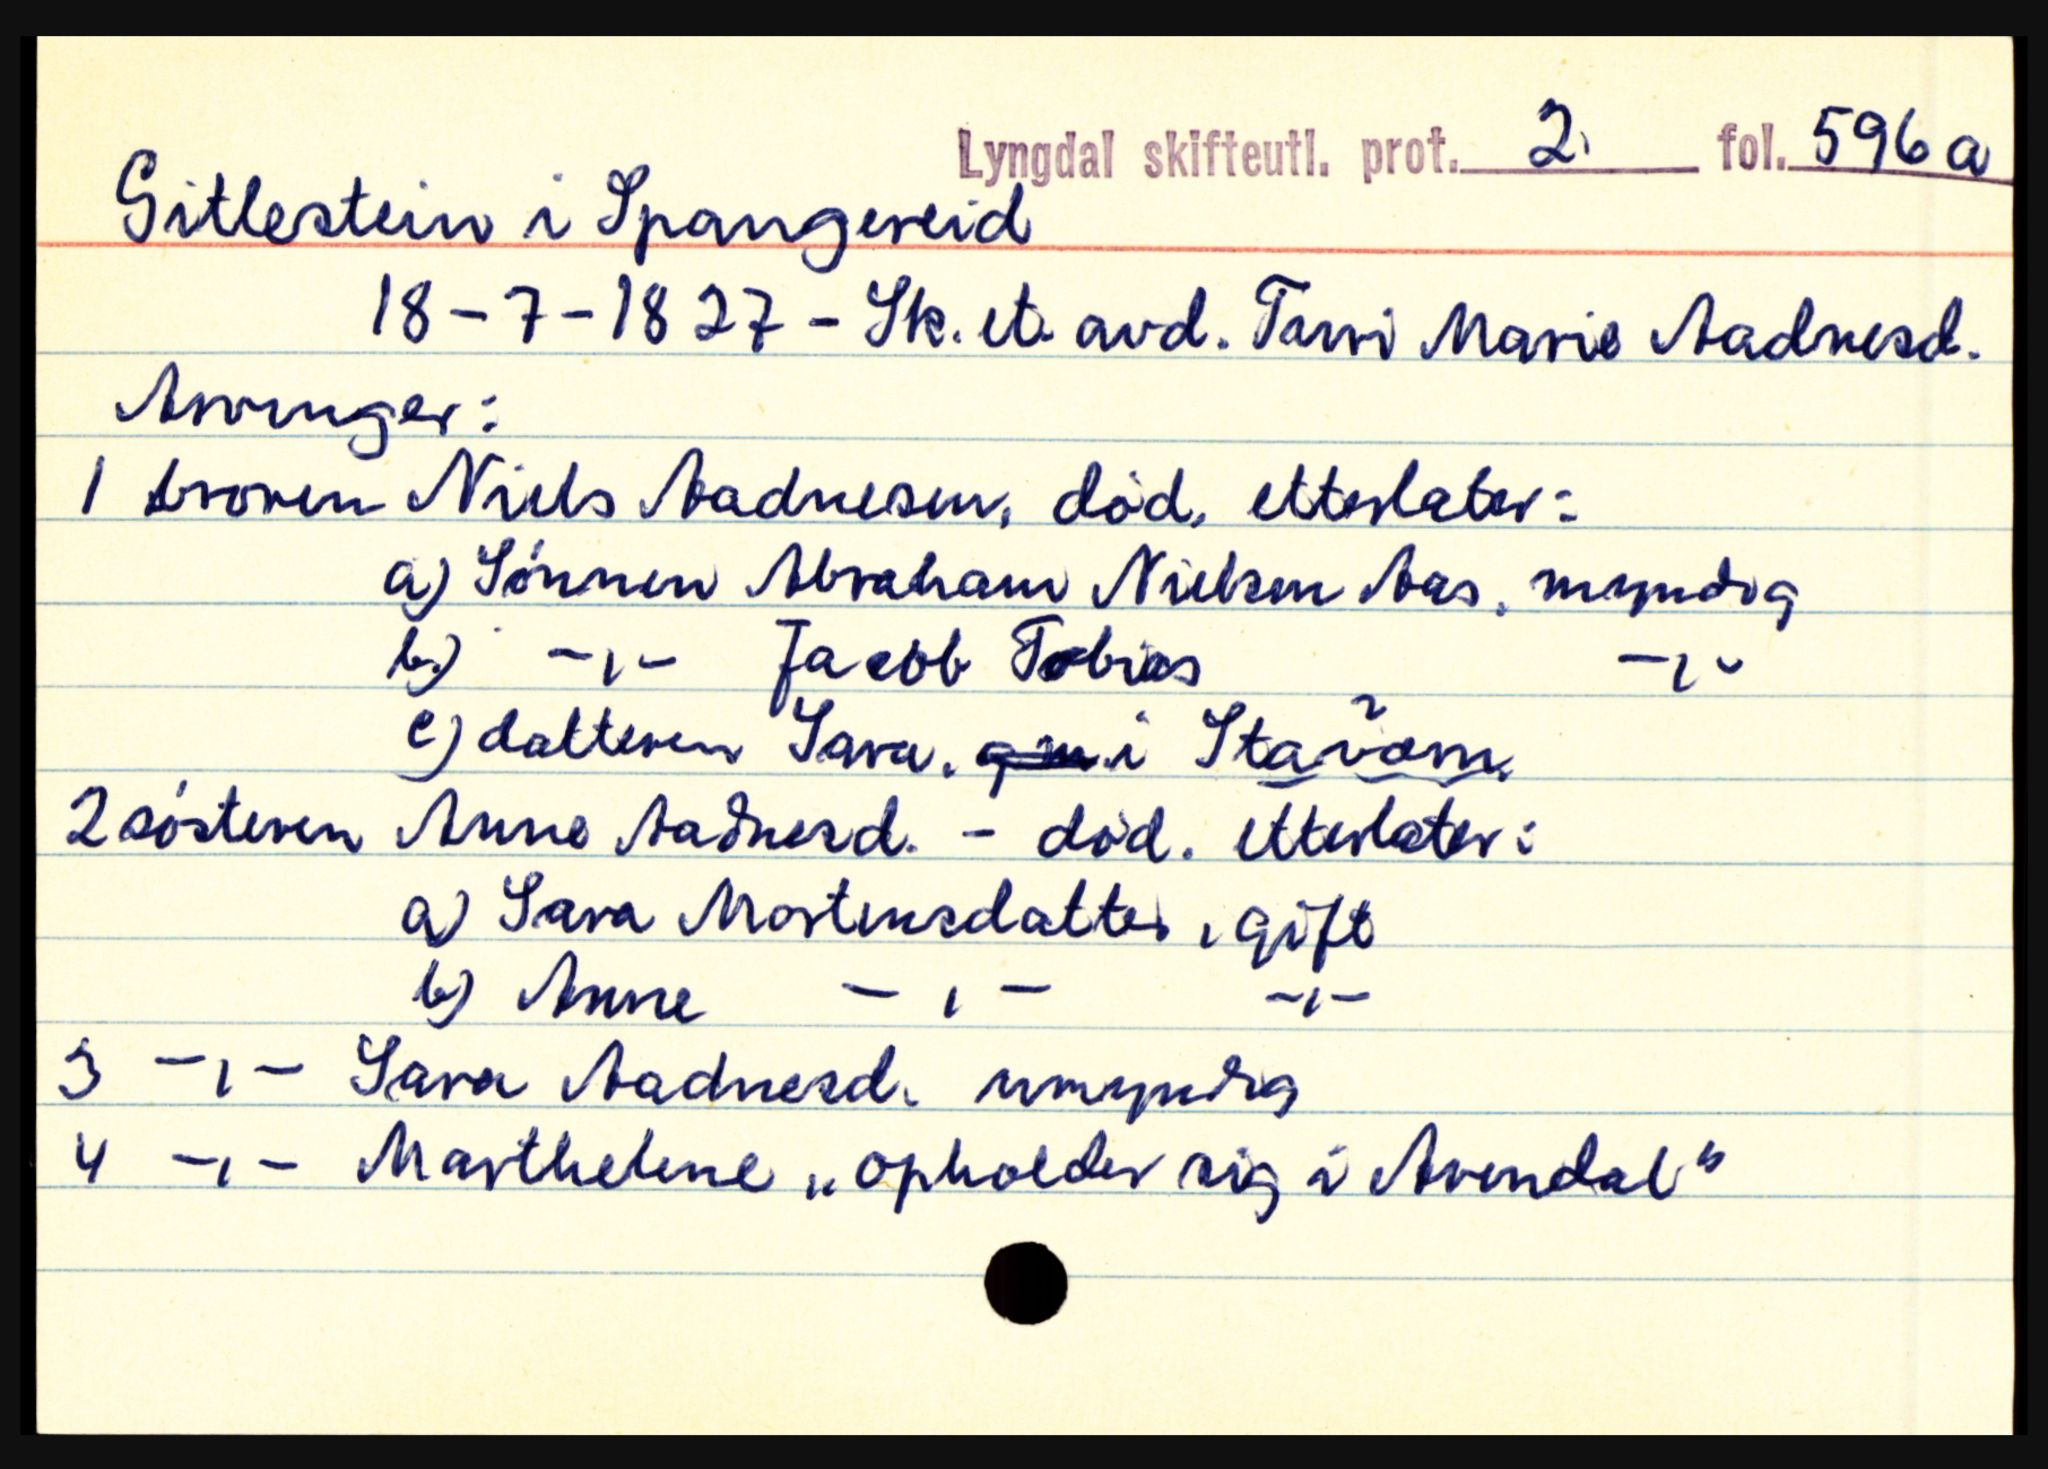 Lyngdal skifteutl. prot. 2. fol. 596 a
Gitlestein i Spangereid
18-7-1827 - Sk. et. avd. Tarri Marie Aadnesd.
Arvinger:
1 broren Niels Aadnesen, död, etterlater:
a) Sönnen Abraham Nielsen Aas, myndig
b) -,,- Jacob Tobias -,,-
c) datteren Sara, i
2 sösteren Anne Aadnesd. - död. etterlater:
a) Sara Mortensdatter, gift
b) Anne -,- -,-
3 -,- Sara Aadnesd. umyndig
4 -,- Marthelene „opholder sig i Arendal"